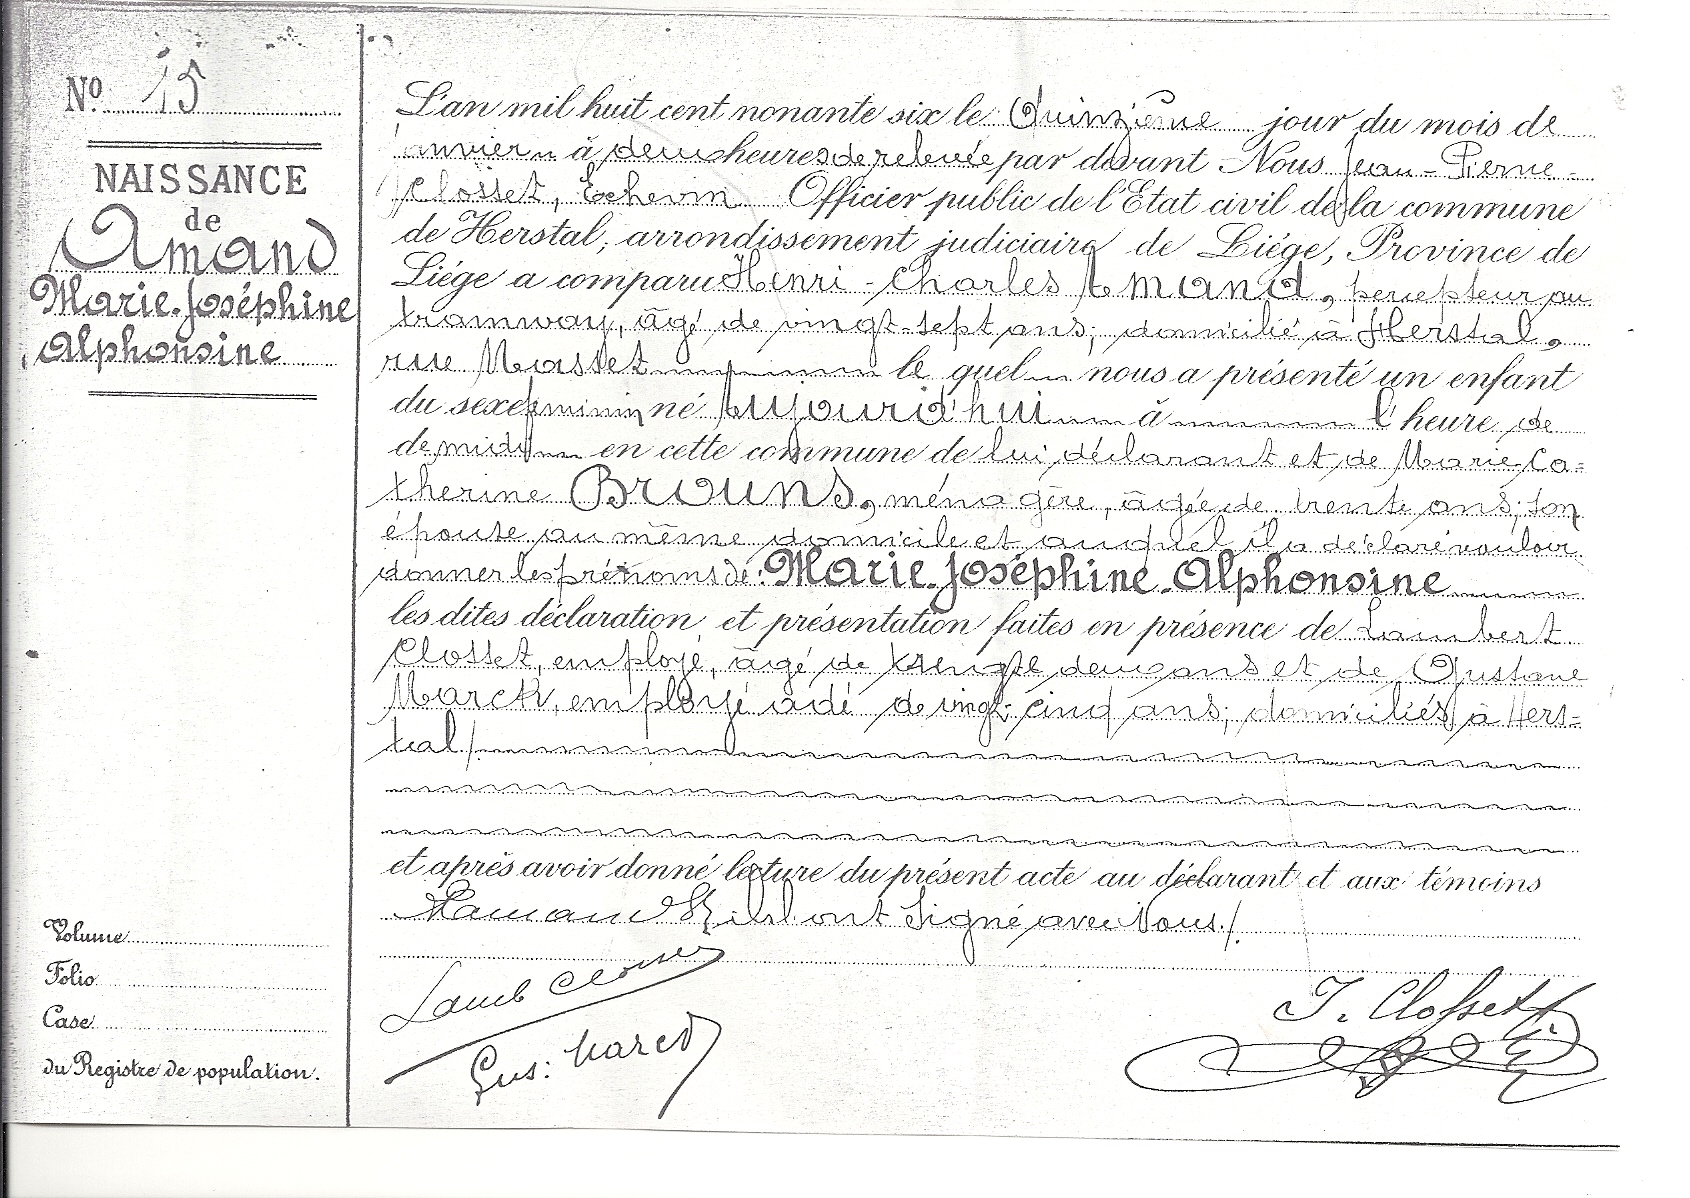 Nº 15
NAISSANCE
de
Amand
Marie-Joséphine
Alphonsine
L'an mil huit cent nonante six le Quinzième jour du mois de
Janvier à deux heures de relevée par devant Nous Jean-Pierre
Closset, Echevin Officier public de l'Etat civil de la commune
de Herstal, arrondissement judiciaire de Liége, Province de
Liége a comparu Henri-Charles Amand, percepteur au
tramway, âgé de vingt-sept ans, domicilié à Herstal,
rue Masset le quel nous a présenté un enfant
du sexe féminin né Aujourd'hui à l'heure de
de midi en cette commune de lui déclarant et de Marie Ca=
therine Brouns, ménagère, âgée de trente ans, son
épouse au même domicile et auquel il a déclaré vouloir
donner les prénoms de: Marie-Joséphine-Alphonsine
les dites déclaration et présentation faites en présence de Lambert
Closset, employé, âgé de deux ans et de Gustave
Marck, employé âdé de vingt-cinq ans, domiciliés à Hers=
tal/.
et après avoir donné lecture du présent acte au déclarant et aux témoins
ils ont signé avec Nous./.
Lamb Closset
J. Closset
Gus: Marck
Volume
Folio
Case
du Registre de population.